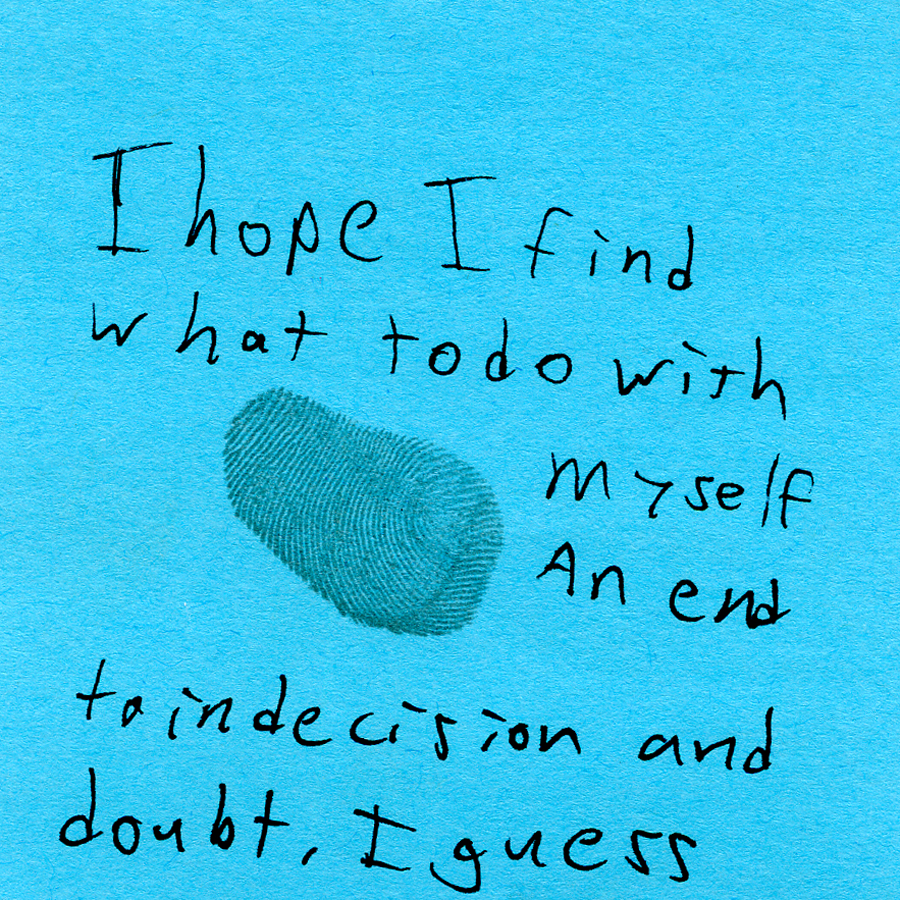 I hope I find
what to do with
myself
An end
to indecision and
doubt, I guess